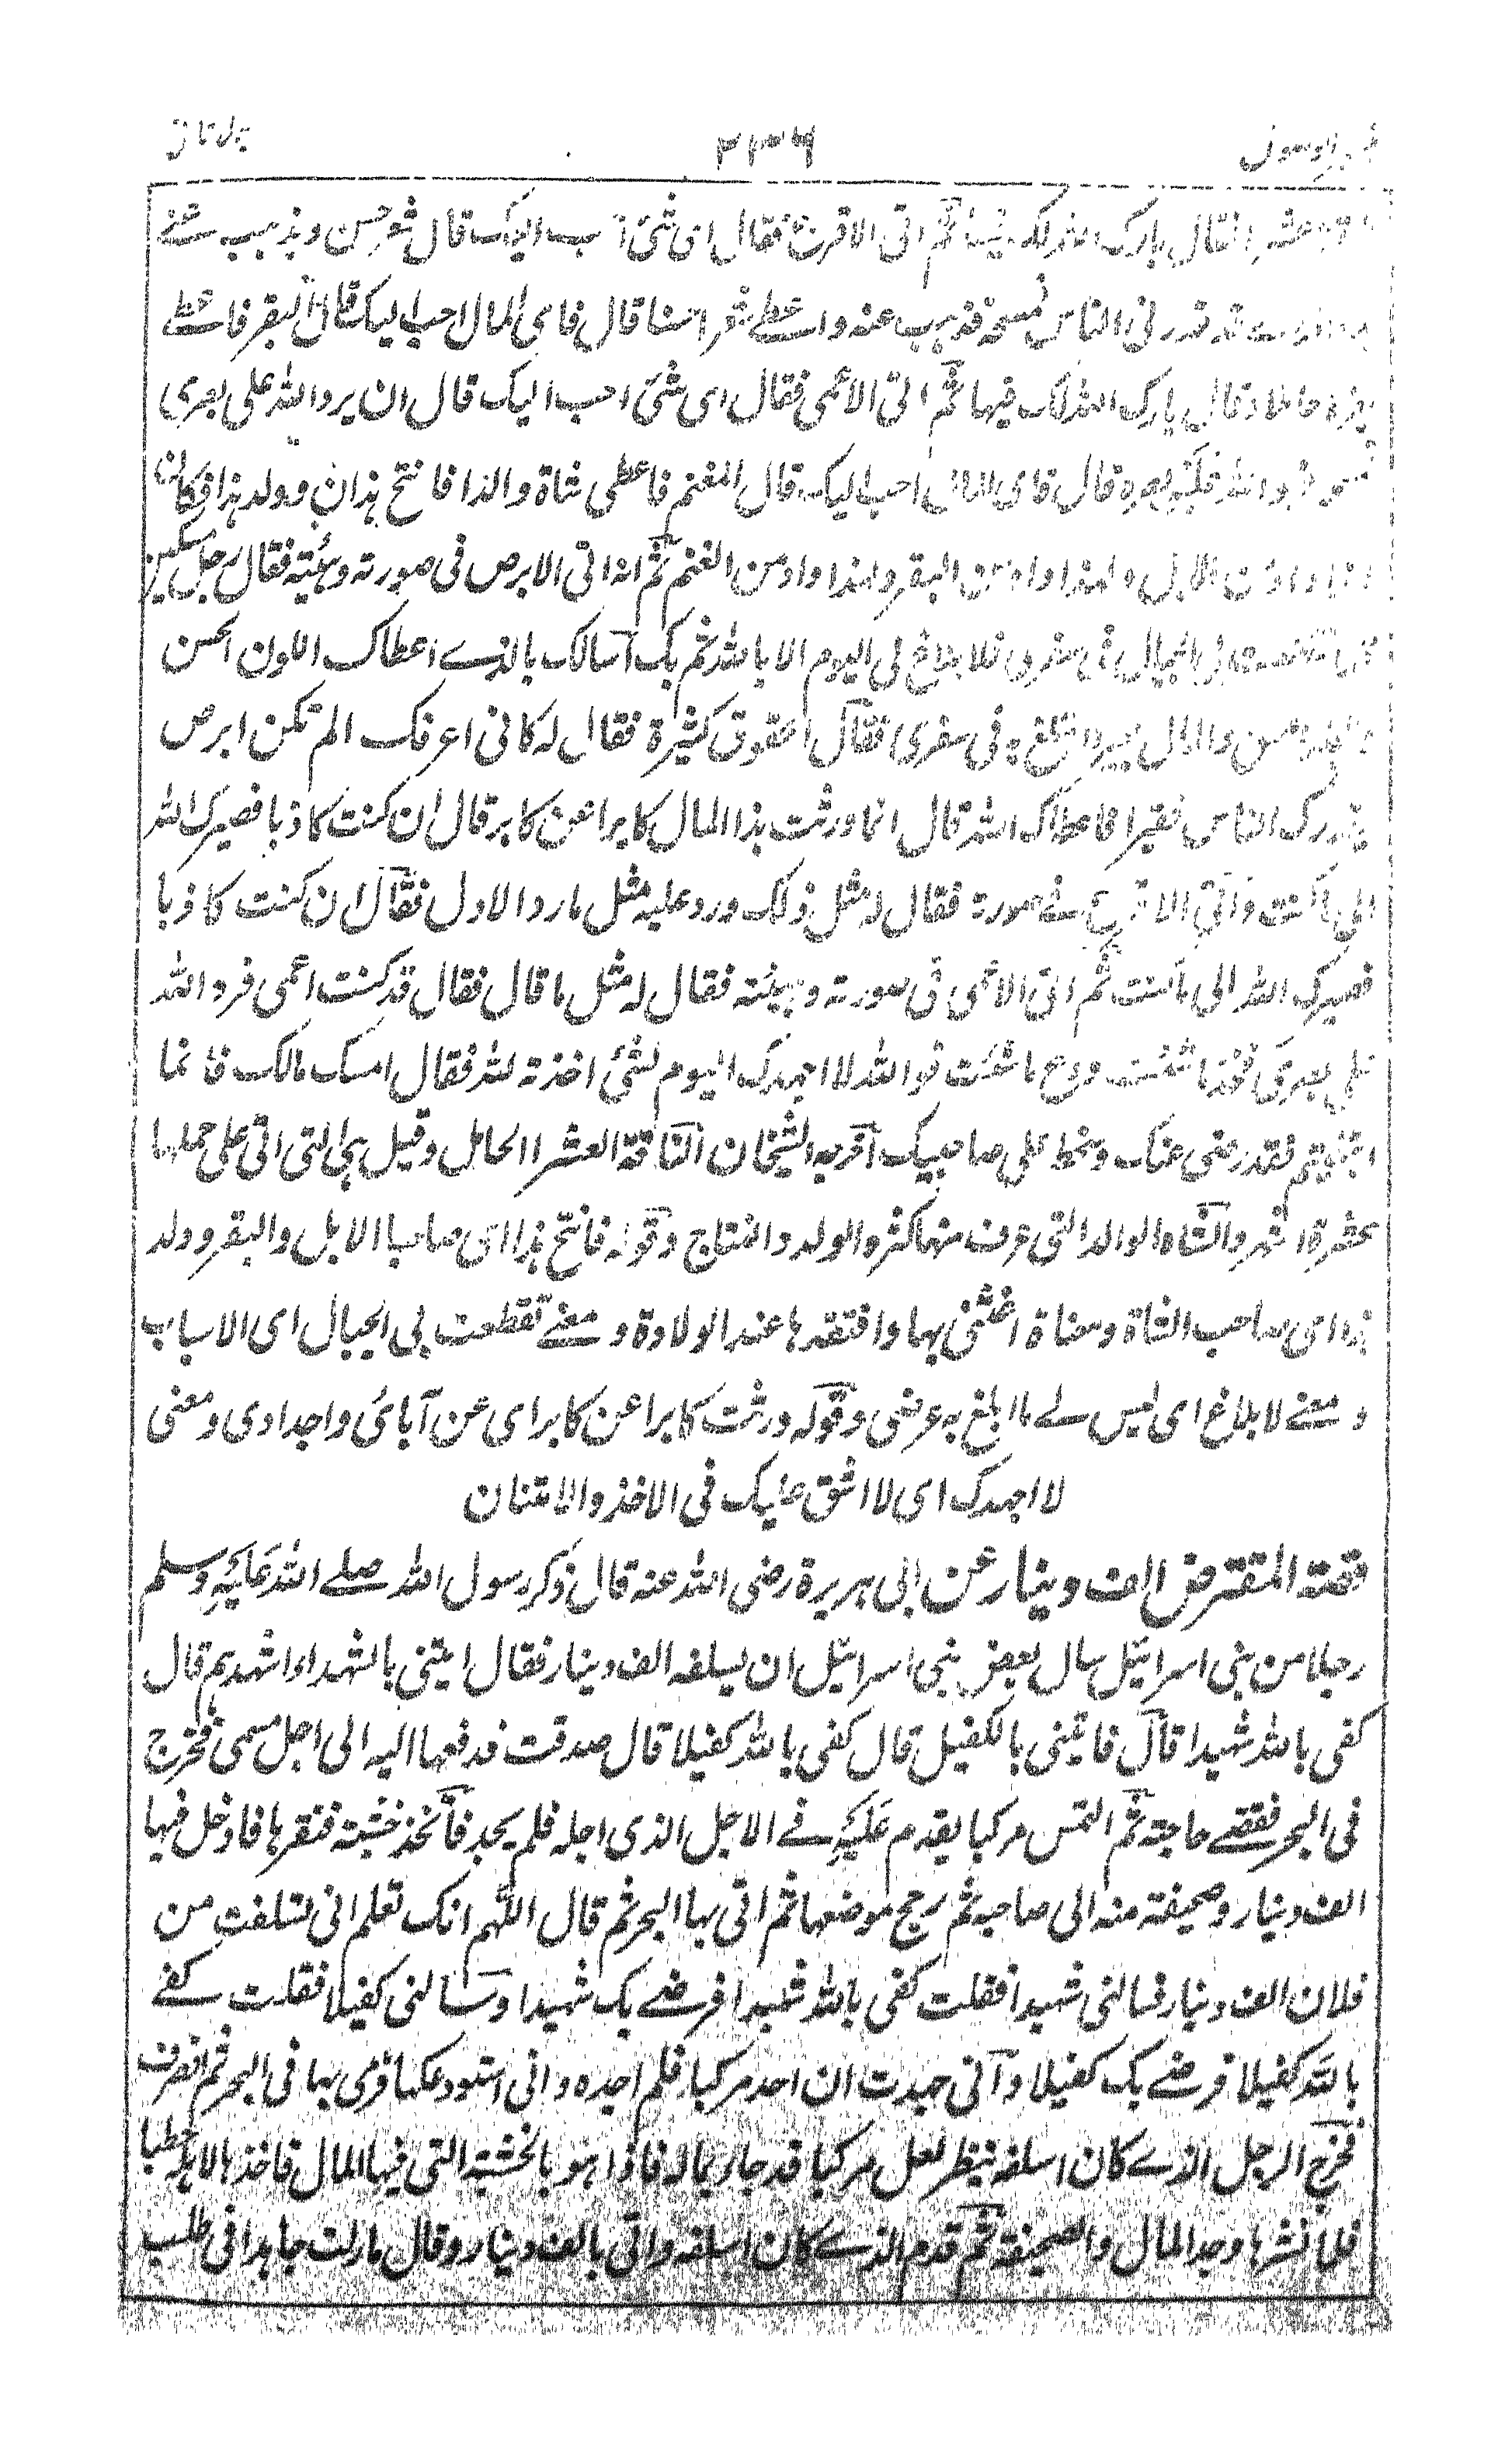 ٢٣٦
ناقة عشراء فقال بارك الله لك فيها ثم اتى الاقرع فقال اى شئ احب اليك قال شعر حسن ويذهب عنے
قد قذرنى الناس فمسحه فذهب عنه واعطے شعرا حسنا قال فاى المال احب اليك قال البقر فاعطے
بقرة حاملا وقال بارك الله لك فيها ثم اتى الاعمى فقال اى شئ احب اليك قال ان يرد الله على بصرى
فرد الله اليه بصره قال فاى المال احب اليك قال الغنم فاعطى شاة والدا فانتج هذان وولد هذا فكان
لهذا واد من الابل ولهذا واد من البقر ولهذا واد من الغنم ثم انه اتى الابرص فى صورته وهيئته فقال رجل مسكين
قد تقطعت بى الحبال فى سفرى فلا بلاغ لى اليوم الا بالله ثم بك اسالك بالذے اعطاك اللون الحسن
والجلد الحسن والمال بعيرا اتبلغ به فى سفرى فقال الحقوق كثيرة فقال له كانى اعرفك الم تكن ابرص
يقذرك الناس فقيرا فاعطاك الله قال انما ورثت هذا المال كابرا عن كابر قال ان كنت كاذبا فصيرك الله
الى ما كنت واتى الاقرع فے صورته فقال له مثل ذلك ورد عليه مثل ما رد الاول فقال ان كنت كاذبا
فصيرك الله الى ما كنت ثم اتى الاعمى فى صورته وهيئته فقال له مثل ما قال فقال قد كنت اعمى فرد الله
على بصرى فخذ ما شئت ودع ما شئت فوالله لا اجهدك اليوم لشئ اخذته لله فقال امسك مالك فانما
ابتليتم فقد رضى عنك وسخط على صاحبيك اخرجه الشيخان الناقة العشرا الحامل وقيل هى التى اتى على حملها
عشرة اشهر والشاه الوالد التى عرف منها كثرة الولد والنتاج وقوله فانتج هذا اى صاحب الابل والبقر وولد
هذا اى صاحب الشاة ومعناة اعتنى بها وافتقدها عند الولادة ومعنے تقطعت بى الحبال اى الاسباب
ومعنے لا بلاغ اى ليس لے ما ابلغ به غرضى وقوله ورثت كابرا عن كابر اى عن آبائى واجدادى ومعنى
لا اجهدك اى لا اشق عليك فى الاخذ والامتنان
قصة المقترض الف دينار عن ابى هريرة رضى الله عنه قال ذكر رسول الله صلے الله عليه وسلم
رجلا من بنى اسرائيل سال بعض بنى اسرائيل ان يسلفه الف دينار فقال ايتنى بالشهداء اشهدهم قال
كفى بالله شهيدا قال فايتنى بالكفيل قال كفى بالله كفيلا قال صدقت فدفعها اليه الى اجل مسمى فخرج
فى البحر فقضے حاجته ثم التمس مركبا يقدم عليه فے الاجل الذى اجله فلم يجد فاتخذ خشبة فنقرها فادخل فيها
الف دينار وصحيفة منه الى صاحبه ثم زجج موضعها ثم اتى بها البحر ثم قال اللهم انك تعلم انى تسلفت من
فلان الف دينار فسالنى شهيدا فقلت كفى بالله شهيدا فرضے بك شهيدا وسالنى كفيلا فقلت كفے
بالله كفيلا فرضے بك كفيلا وانى جهدت ان اجد مركبا فلم اجده وانى استودعكها فرمى بها فى البحر ثم انصرف
فخرج الرجل الذے كان اسلفه ينظر لعل مركبا قد جاء بماله فاذا هو بالخشبة التى فيها المال فاخذها لاهله حطبا
فلما نشرها وجد المال والصحيفة ثم قدم الذے كان اسلفه واتى بالف دينار وقال مازلت جاهدا فى طلب